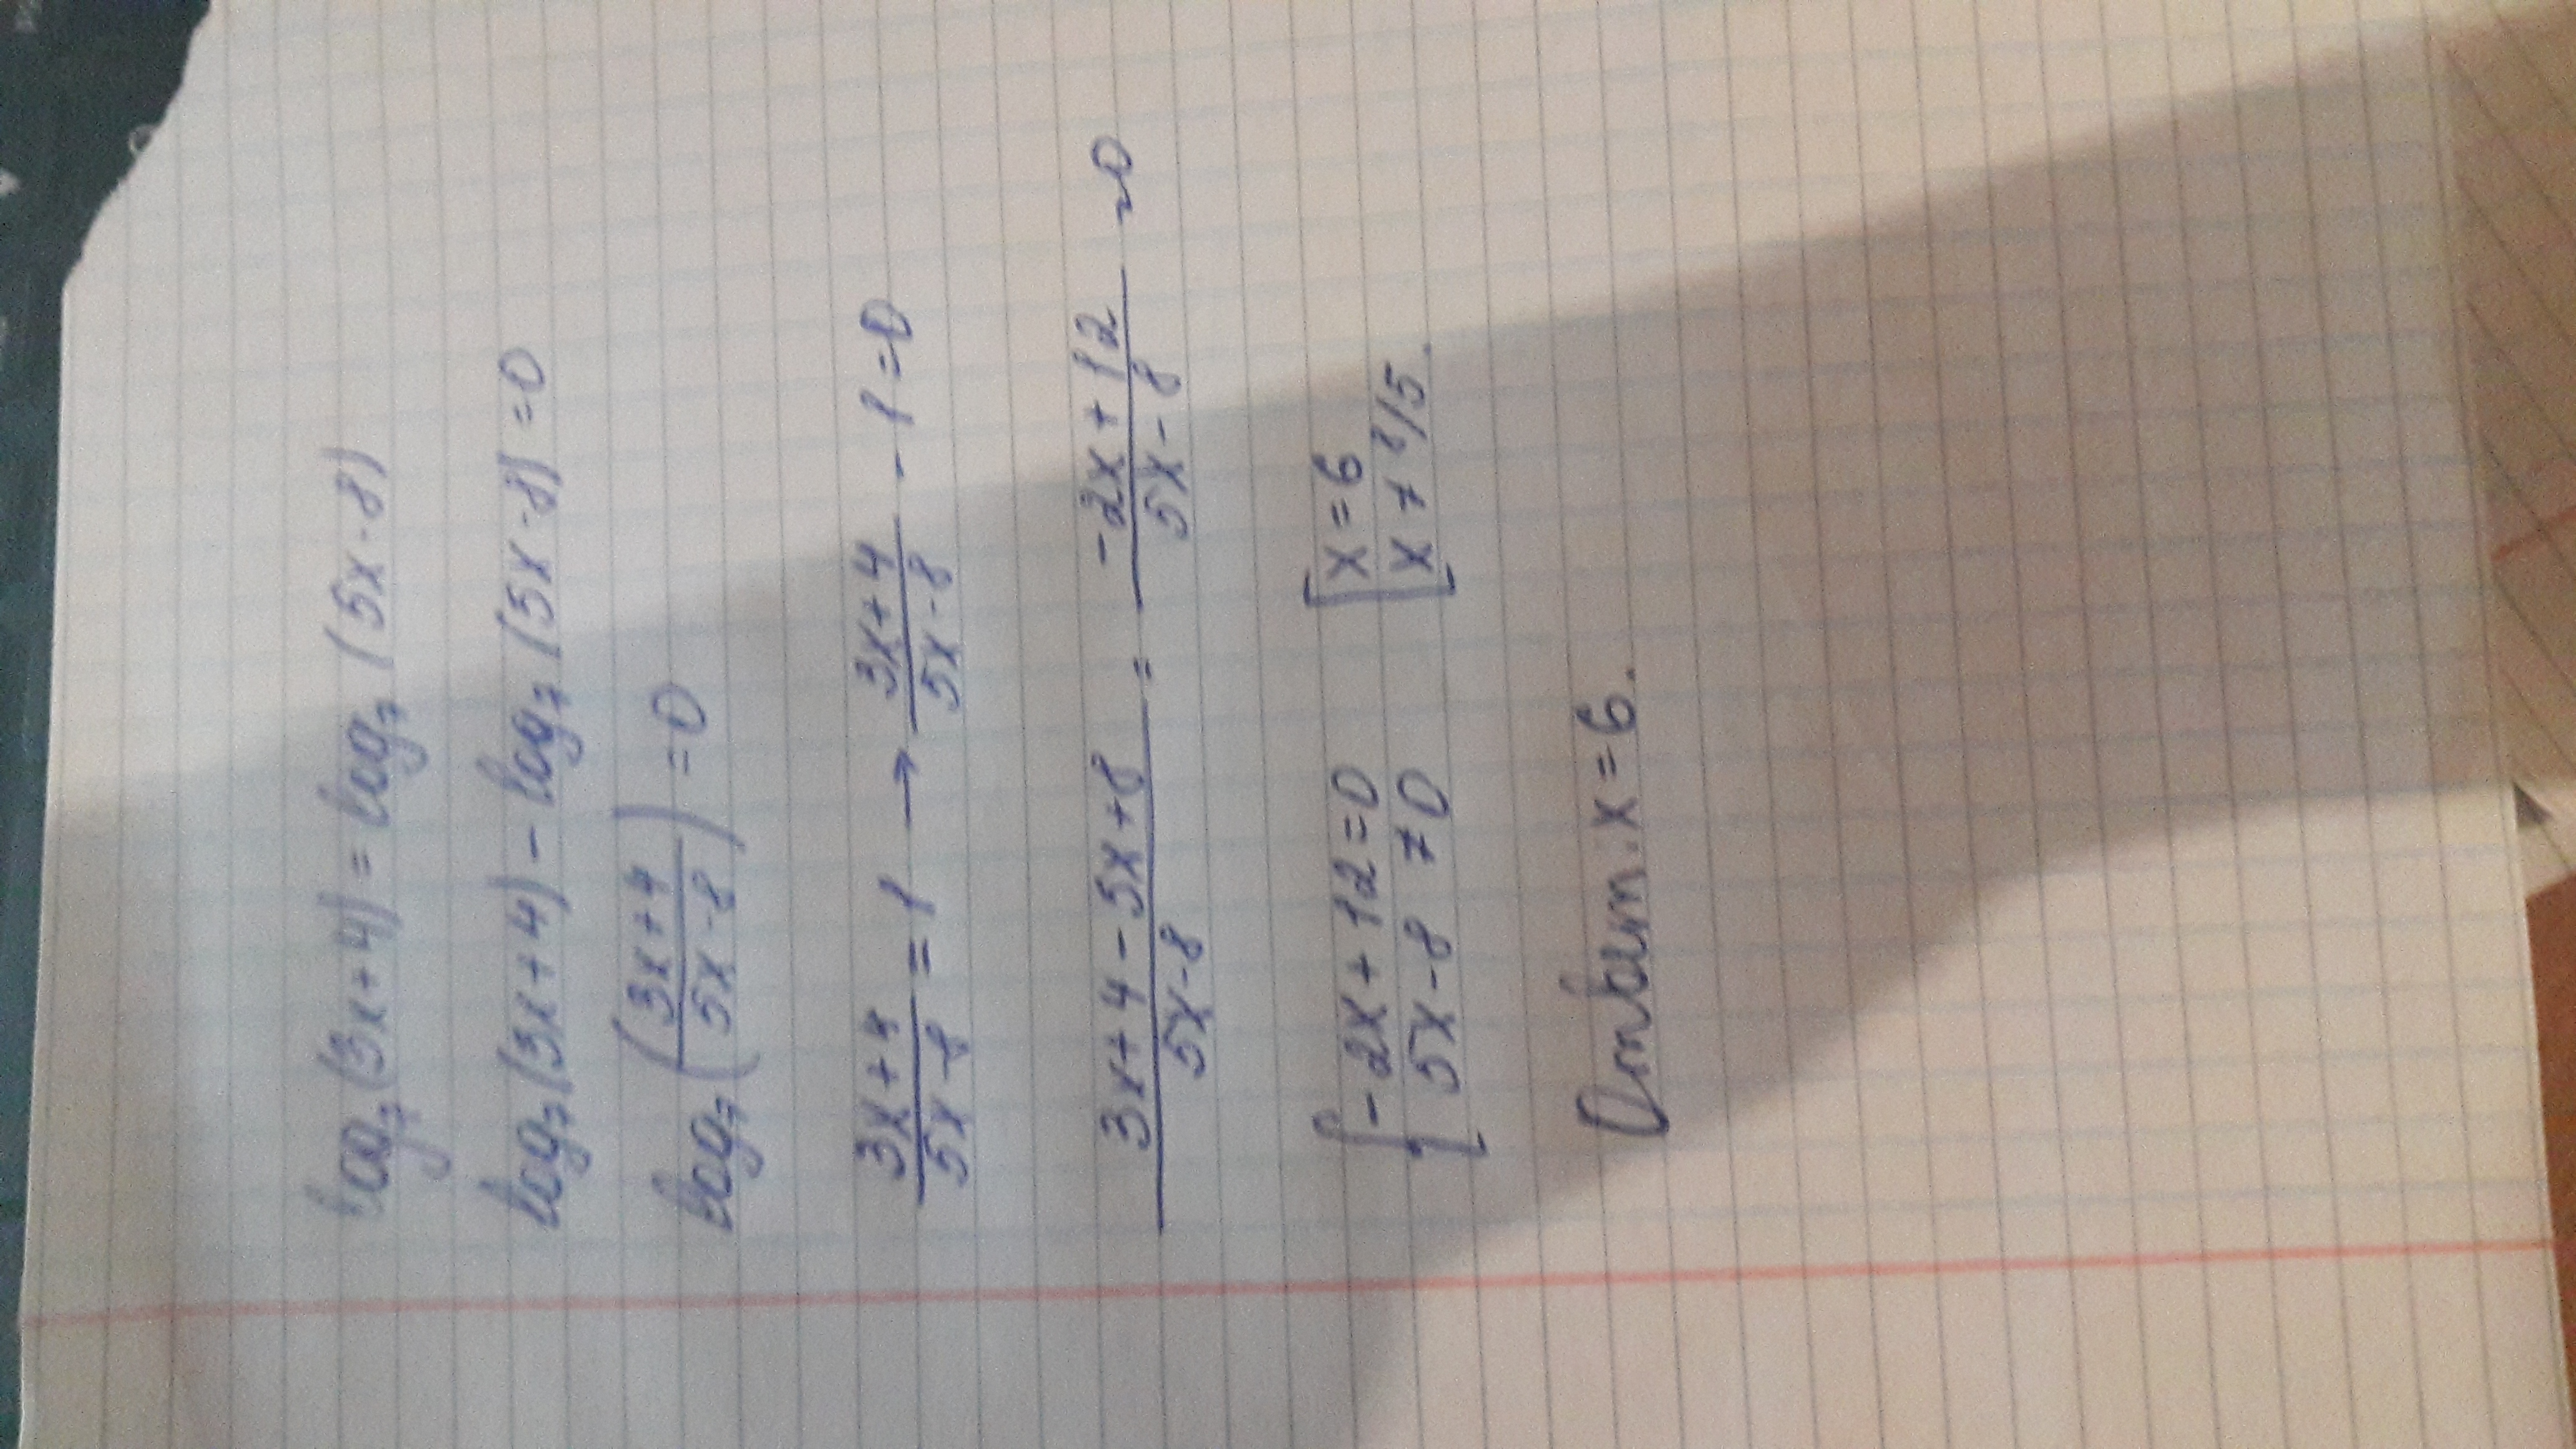 log₇(3x+4) = log₇(5x-8)
log₇(3x+4) - log₇(5x-8) = 0
log₇((3x+4)/(5x-8)) = 0
(3x+4)/(5x-8) = 1 → (3x+4)/(5x-8) - 1 = 0
(3x+4-5x+8)/(5x-8) = (-2x+12)/(5x-8) = 0
[-2x+12=0 [x=6
[5x-8≠0 [x≠8/5.
Ответ: x=6.